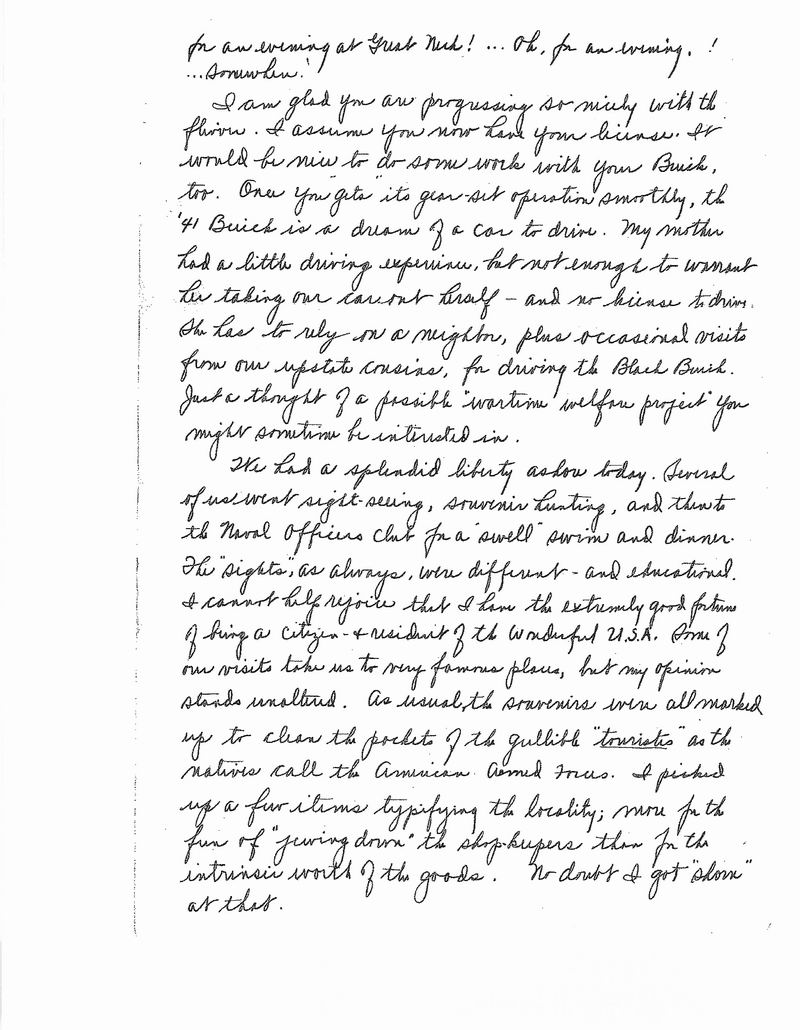 for an evening at Great Neck! ... Oh, for an evening. !
...Somewhen!
I am glad you are progressing so nicely with the
flivver. I assume you now have your license. It
would be nice to do some work with your Buick,
too. Once you "gets" its gear-set operation smoothly, the
'41 Buick is a dream of a car to drive. My mother
had a little driving experience, but not enough to warrant
her taking our car out herself - and no license to drive.
She has to rely on a neighbor, plus occasional visits
from our upstate cousins, for driving the Black Buick.
Just a thought of a possible "wartime welfare project" you
might sometime be interested in.
We had a splendid liberty ashore today. Several
of us went sight-seeing, souvenir hunting, and then to
the Naval Officers Club for a "swell" swim and dinner.
The "sights", as always, were different - and educational.
I cannot help rejoice that I have the extremely good fortune
of being a citizen - & resident of the Wonderful U.S.A. Some of
our visits take us to very famous places, but my opinion
stands unaltered. As usual, the souvenirs were all marked
up to clean the pockets of the gullible "tourists" as the
natives call the American Armed Forces. I picked
up a few items typifying the locality; more for the
fun of "jewing down" the shop-keepers than for the
intrinsic worth of the goods. No doubt I got "shorn"
at that.